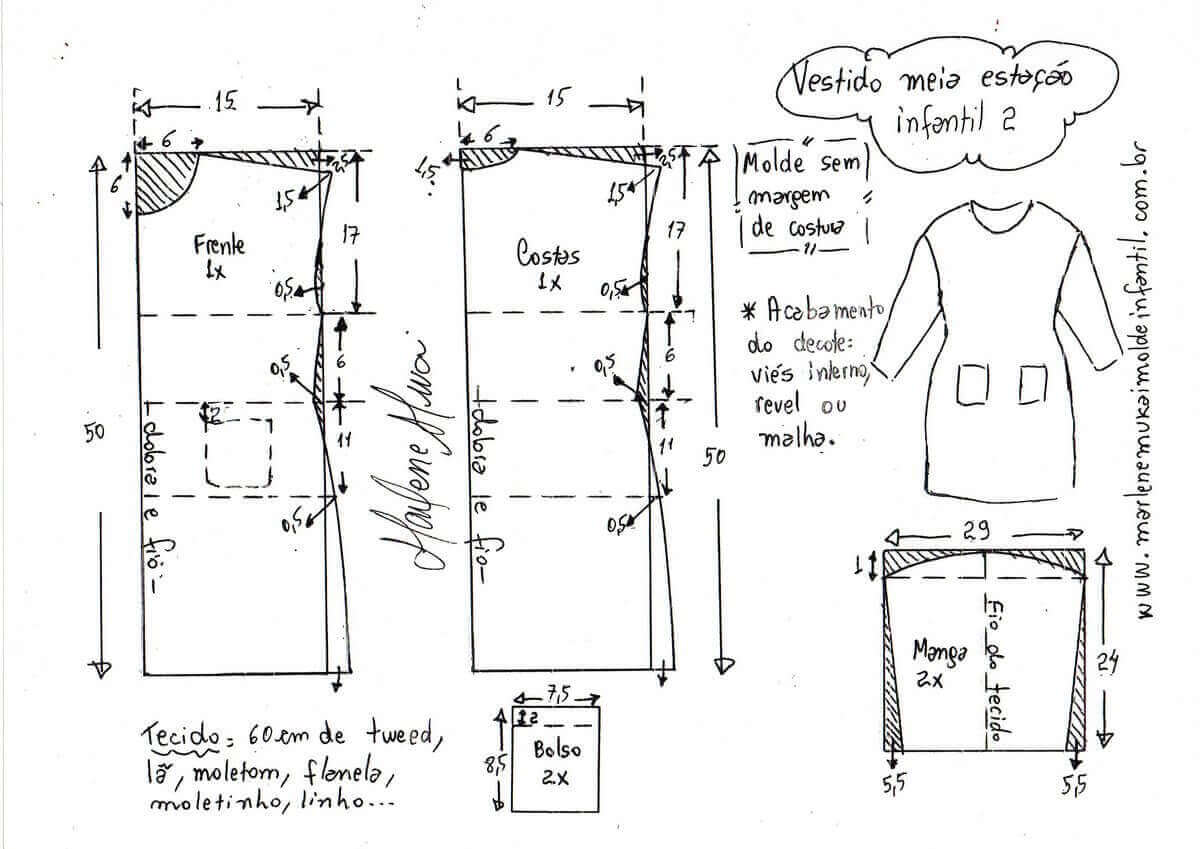 Vestido meia estação
infantil 2
Molde sem
margem
de costura
* Acabamento
do decote:
viés interno,
revel ou
malha.
www.marlenemukaimoldeinfantil.com.br
15
6
6
2,5
1,5
17
Frente
1x
0,5
6
0,5
2
11
50
dobra e fio
0,5
Marlene Mukai
15
6
1,5
2,5
1,5
17
Costas
1x
0,5
6
0,5
11
50
dobra e fio
0,5
29
1
Manga
2x
Fio do tecido
24
5,5
5,5
7,5
2
8,5
Bolso
2x
Tecido: 60cm de tweed,
lã, moletom, flanela,
moletinho, linho...